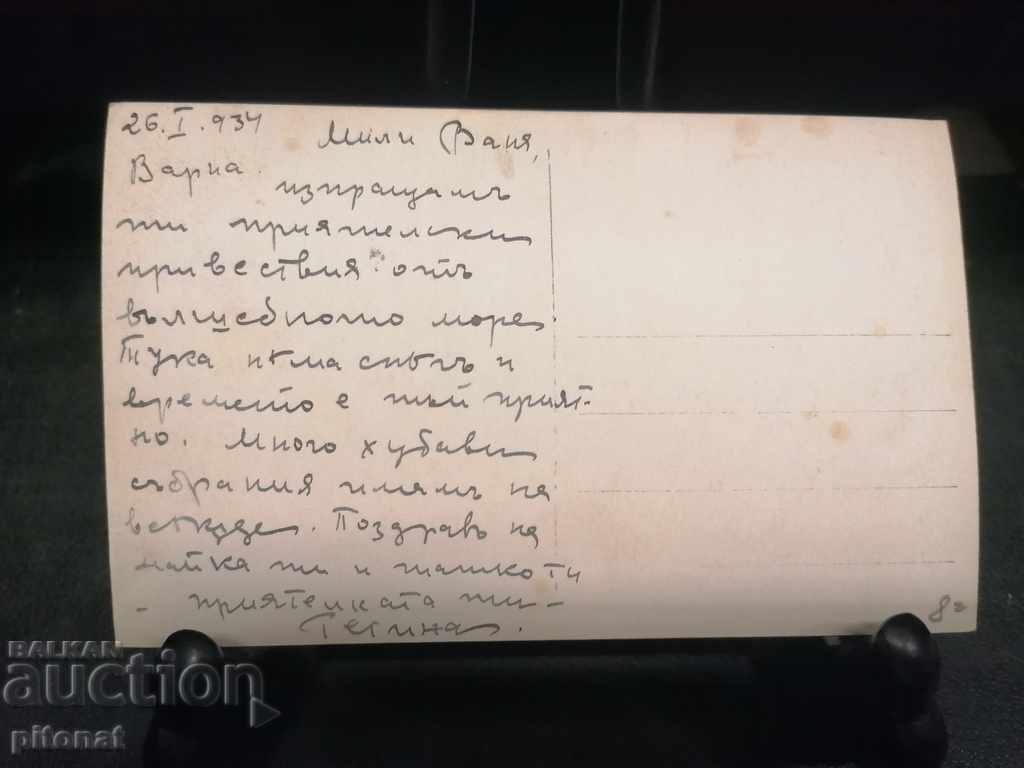 26.I.934
Мили Ваня,
Варна.
изпращамъ
ти приятелски
привествия отъ
вълшебното море.
Тука нѣма снѣгъ и
времето е тъй прият-
но. Много хубави
събрания имамъ на
всѣкѫде. Поздравъ на
майка ти и ти
- приятелката ти -
8г
BALKAN
auction
pitonat